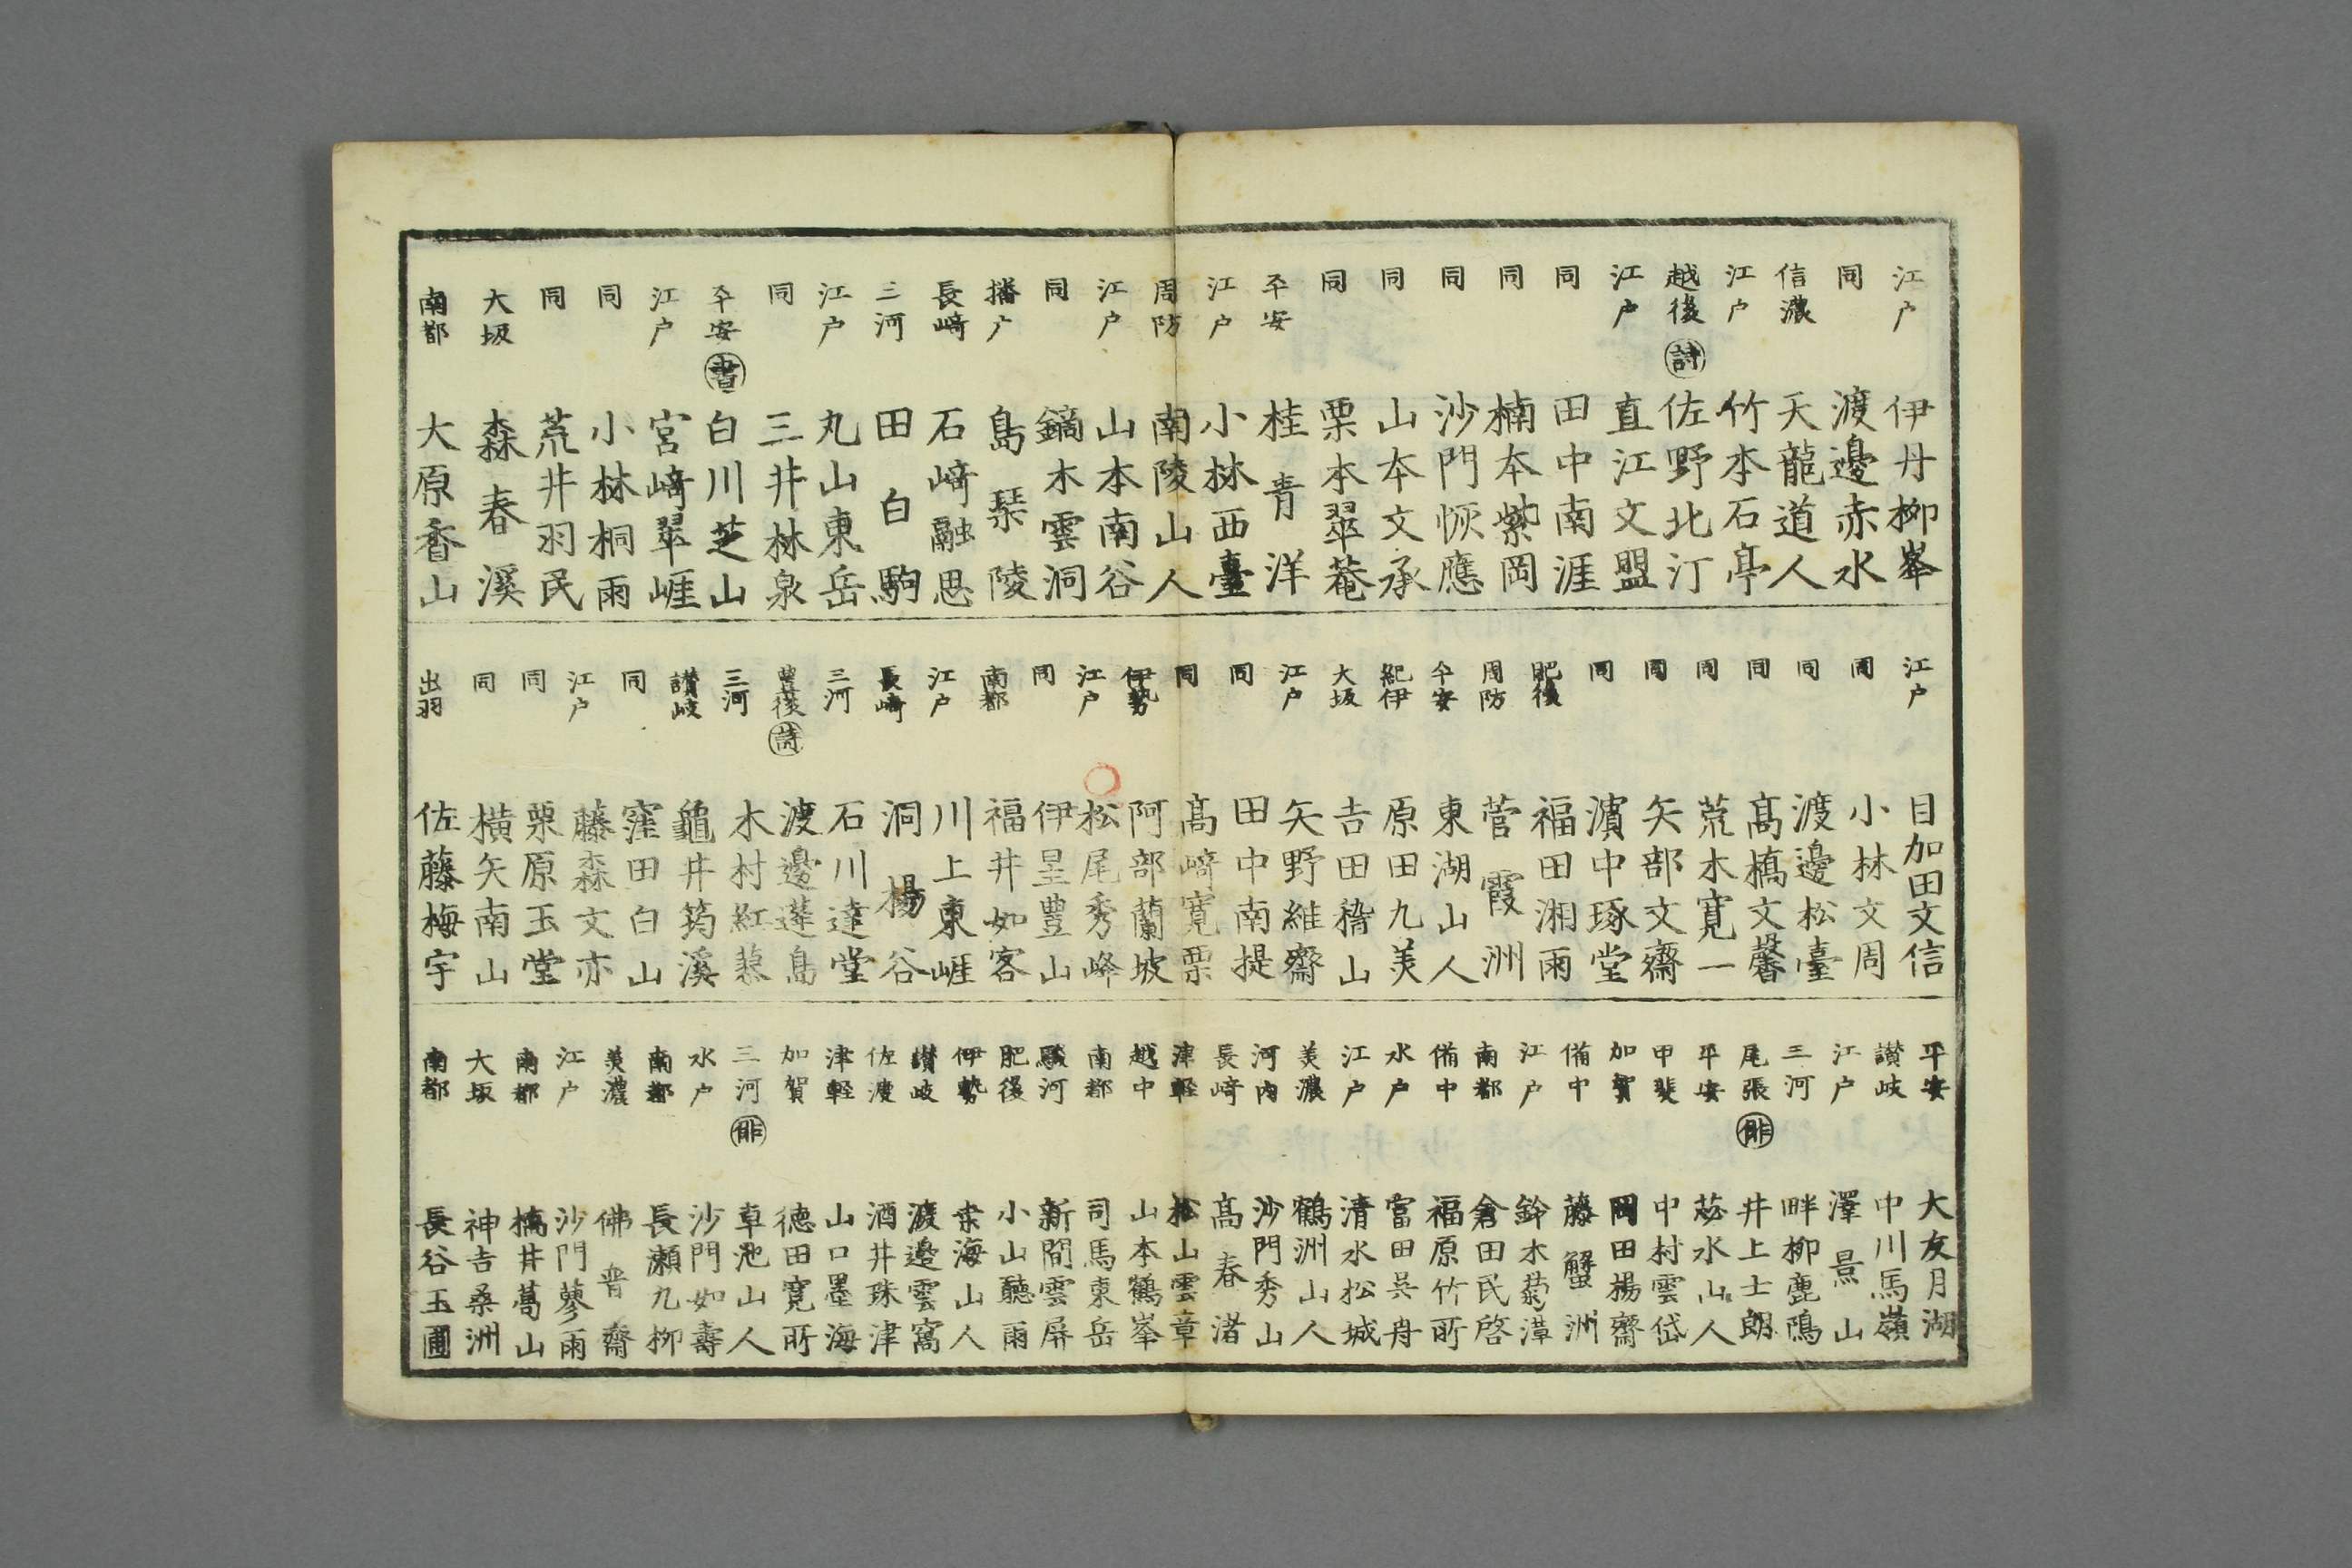 江户 伊丹柳峯
同 渡邊赤水
信濃 天龍道人
江户 竹本石亭
越後 詩 佐野北汀
江户 直江文盟
同 田中南涯
同 楠本紫岡
同 沙門恢應
同 山本文承
同 栗本翠菴
平安 桂青洋
江户 小林西臺
周防 南陵山人
江户 山本南谷
同 鏑木雲洞
播广 島琹陵
長﨑 石﨑融思
三河 田白駒
江户 丸山東岳
同 三井林泉
平安 書 白川芝山
江户 宮﨑翠崕
同 小林桐雨
同 荒井羽民
大坂 森春溪
南都 大原香山
江户 目加田文信
同 小林文周
同 渡邊松臺
同 髙橋文馨
同 荒木寛一
同 矢部文齋
同 濱中琢堂
肥後 福田湘雨
周防 菅霞洲
平安 東湖山人
紀伊 原田九羙
大坂 吉田稽山
江户 矢野維齋
同 田中南提
同 髙﨑寛栗
伊勢 阿部蘭坡
江户 松尾秀峰
同 伊里豊山
南都 福井如客
江户 川上東崕
長﨑 洞楊谷
三河 石川達堂
豊後 詩 渡邊蓬島
三河 木村紅
讃岐 龜井筠溪
同 窪田白山
江户 藤森文亦
同 栗原玉堂
同 横矢南山
出羽 佐藤梅宇
平安 大友月湖
讃岐 中川馬嶺
江户 澤景山
三河 畔柳鹿鳴
尾張 俳 井上士朗
平安 苾水山人
甲斐 中村雲岱
加賀 岡田楊齋
備中 藤蟹洲
江户 鈴木菊潭
南都 倉田民啓
備中 福原竹所
水户 富田吴舟
江户 清水松城
羙濃 鶴洲山人
河内 沙門秀山
長﨑 髙春渚
津軽 松山雲章
越中 山本鶴峯
南都 司馬東岳
駿河 新間雲屏
肥後 小山聽雨
伊勢 桒海山人
讃岐 渡邉雲窩
佐渡 酒井珠津
津軽 山口墨海
加賀 德田寛所
三河 俳 卓池山人
水户 沙門如壽
南都 長瀬九柳
羙濃 佛晋齋
江户 沙門蓼雨
南都 橋井蔦山
大坂 神吉桑洲
南都 長谷玉圃